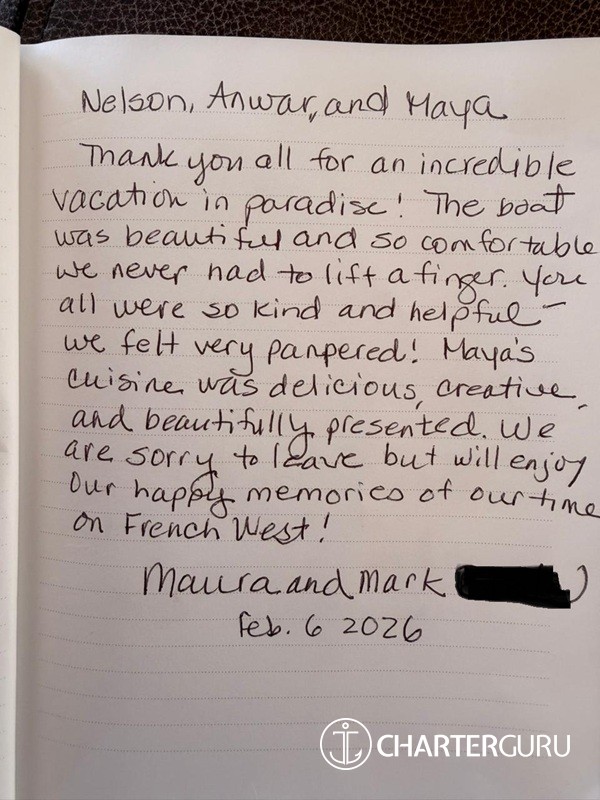 Nelson, Anwar, and Maya
Thank you all for an incredible
vacation in paradise! The boat
was beautiful and so comfortable
we never had to lift a finger. You
all were so kind and helpful –
we felt very pampered! Maya's
cuisine was delicious, creative,
and beautifully presented. We
are sorry to leave but will enjoy
our happy memories of our time
on French West!
Maura and Mark
Feb. 6 2026
CHARTERGURU